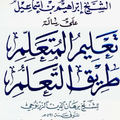 الشيخ إبراهيم بن إسماعيل
على رسالة
تعليم المتعلم
طريق التعلم